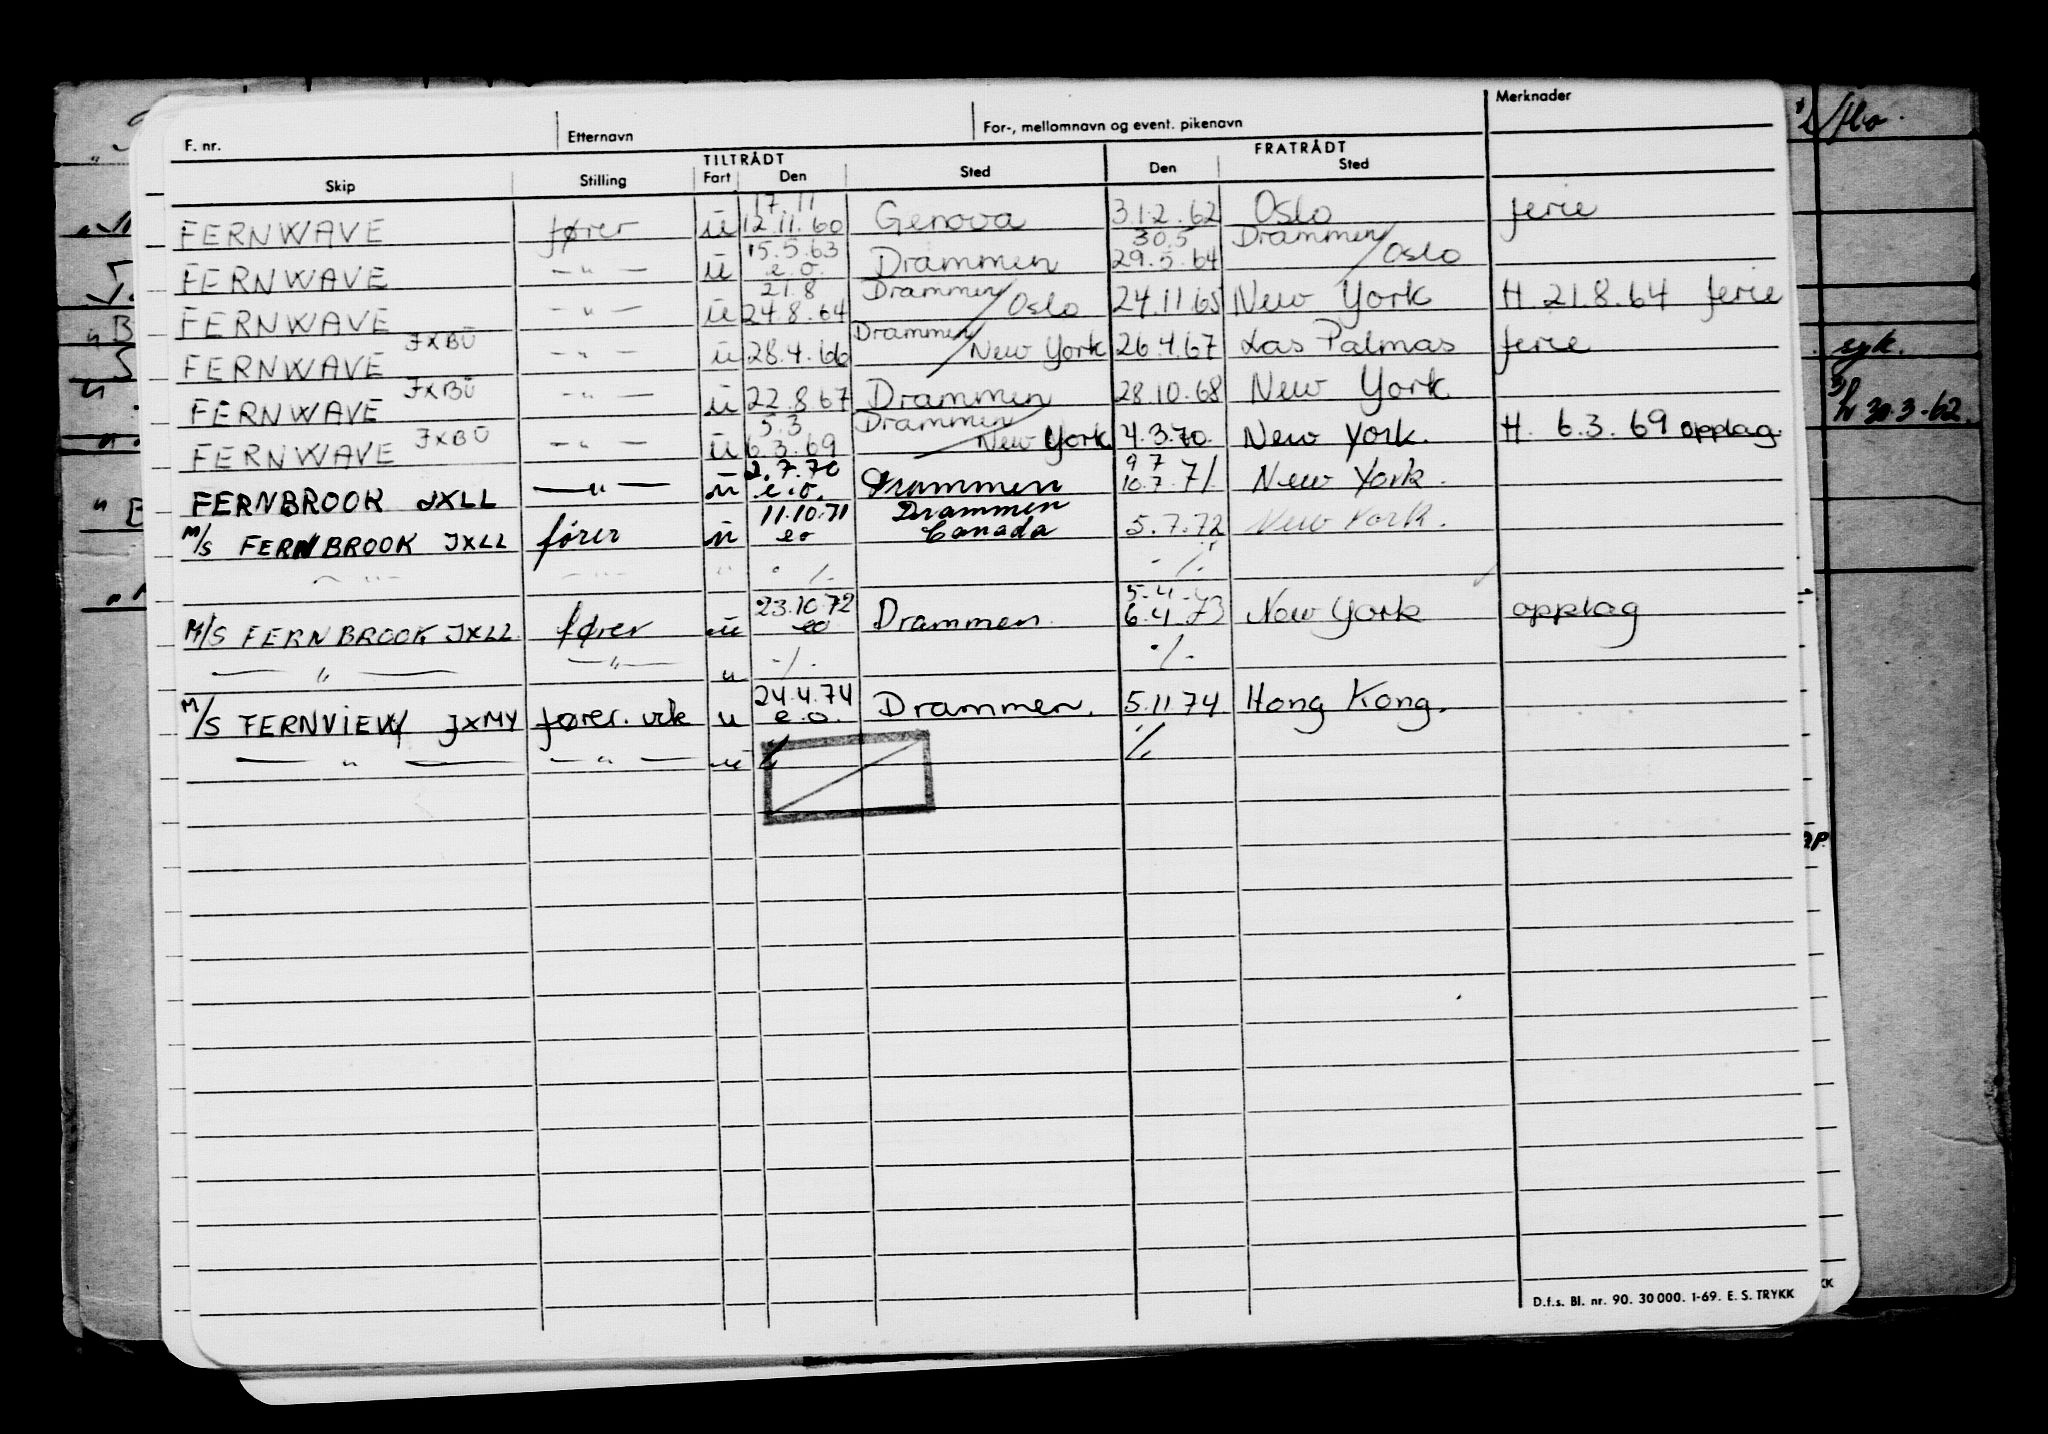 F. nr. Etternavn For-, mellomnavn og event. pikenavn Merknader
TILTRÅDT FRATRÅDT
Skip Stilling Fart Den Sted Den Sted
17.11
FERNWAVE fører ü 12.11.60 Genova 31.2.62 Oslo ferie
15.5.63 30.5 Drammen/
FERNWAVE — " — ü e.o. Drammen 29.5.64 Oslo
21.8 Drammen/
FERNWAVE — " — ü 24.8.64 Oslo 24.11.65 New York H. 21.8.64 ferie
JXBU Drammen/
FERNWAVE — " — ü 28.4.66 New York 26.4.67 Las Palmas ferie
FERNWAVE JXBU — " — ü 22.8.67 Drammen 28.10.68 New York
5.3. Drammen/
FERNWAVE JXBU — " — ü 6.3.69 New York 4.3.70 New York. H. 6.3.69 opplag.
2.7.70 9 7
FERNBROOK JXLL — " — ü e.o. Drammen 10.7.71 New York.
11.10.71 Drammen
M/S FERNBROOK JXLL fører ü eo Canada 5.7.72 New York.
— " — — " — " ./. ./.
23.10.72 5.4.73
M/S FERNBROOK JXLL fører ü eo Drammen 6.4.73 New York opplag
— " — — " — " ./. ./.
24.4.74
M/S FERNVIEW JXMY fører. vik u e.o. Drammen. 5.11.74 Hong Kong.
— " — — " — ü ./. ./.
D.f.s. Bl. nr. 90. 30 000. 1-69. E. S. TRYKK
syk.
30.3.-62.